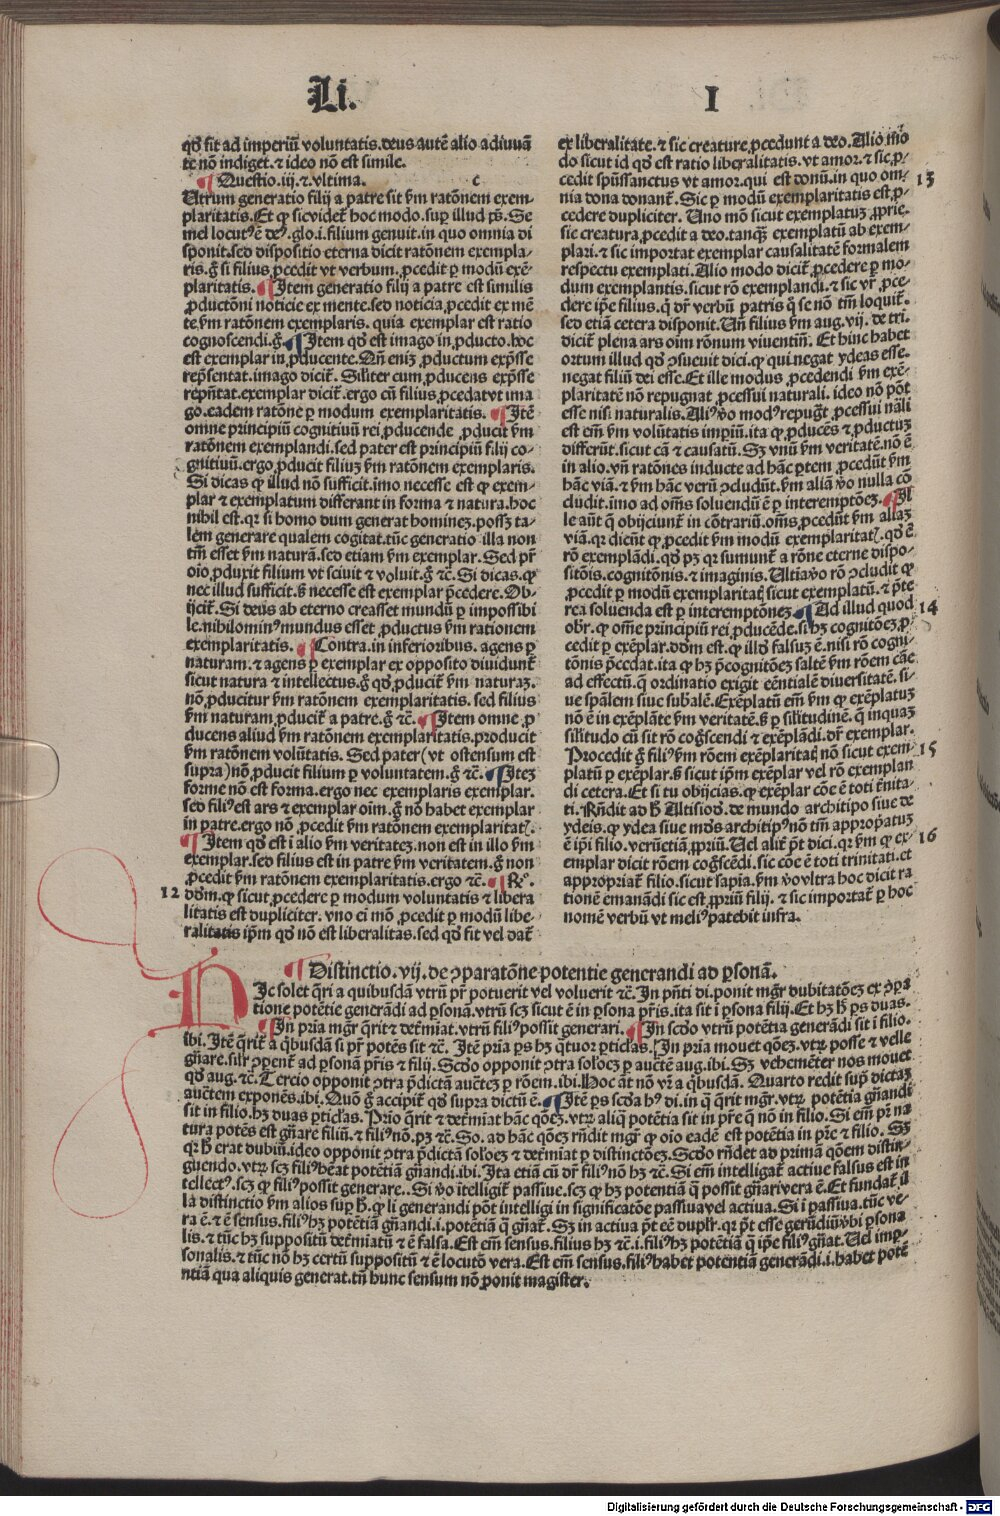 Li. I
qđ fit ad imperiū voluntatis. deus autē alio adiuuā
te nō indiget. ⁊ ideo nō est simile.
¶ Questio .iij. ⁊ vltima. c
Utrum generatio filij a patre sit ẜm ratōnem exem-
plaritatis. Et ꝙ sic videt̄ hoc modo. suꝑ illud ps̄. Se
mel locutꝰ ē deꝰ. glo. i. filium genuit. in quo omnia di
sponit. sed dispositio eterna dicit ratōnem exempla-
ris. g̊ si filius ꝓcedit vt verbum. ꝓcedit ꝑ modū exē-
plaritatis. ¶ Item generatio filij a patre est similis
ꝓductōni noticie ex mente. sed noticia ꝓcedit ex mē
te ẜm ratōnem exemplaris. quia exemplar est ratio
cognoscendi. g̊. ¶ Item qđ est imago in ꝓducto. hoc
est exemplar in ꝓducente. Qn̄ enim ꝓductum exp̄sse
rep̄sentat. imago dicit̄. Siliter cum ꝓducens exp̄sse
rep̄ntat. exemplar dicit̄. ergo cū filius ꝓcedat vt ima
go. eadem ratōne ꝑ modum exemplaritatis. ¶ Itē
omne principiū cognitiuū rei ꝓducende ꝓducit ẜm
ratōnem exemplandi. sed pater est principiū filij co-
gnitiuū. ergo ꝓducit filium ẜm ratōnem exemplaris.
Si dicas ꝙ illud nō sufficit. imo necesse est ꝙ exem-
plar ⁊ exemplatum differant in forma ⁊ natura. hoc
nihil est. qr si homo dum generat hominem. possꝫ ta-
lem generare qualem cogitat. tūc generatio illa non
tm̄ esset ẜm naturā. sed etiam ẜm exemplar. Sed pr̄
oīo ꝓduxit filium vt sciuit ⁊ voluit. g̊ ⁊c̄. Si dicas. ꝙ
nec illud sufficit. sꝫ necesse est exemplar p̄cedere. Ob-
ijcit̄. Si deus ab eterno creasset mundū ꝑ impossibi
le. nihilominꝰ mundus esset ꝓductus ẜm rationem
exemplaritatis. ¶ Contra. in inferioribus. agens ꝑ
naturam. ⁊ agens ꝑ exemplar ex opposito diuidunt̄
sicut natura ⁊ intellectus. g̊ qđ ꝓducit̄ ẜm naturam.
nō ꝓducitur ẜm ratōnem exemplaritatis. sed filius
ẜm naturam ꝓducit̄ a patre. g̊ ⁊c̄. ¶ Item omne ꝓ
ducens aliud ẜm ratōnem exemplaritatis. producit
ẜm ratōnem volūtatis. Sed pater (vt ostensum est
supra) nō ꝓducit filium ꝑ voluntatem. g̊ ⁊c̄. ¶ Item
forme nō est forma. ergo nec exemplaris exemplar.
sed filiꝰ est ars ⁊ exemplar oīm. g̊ nō habet exemplar
in patre. ergo nō ꝓcedit ẜm ratōnem exemplaritat̄.
¶ Item qđ est ī alio ẜm veritatem. non est in illo ẜm
exemplar. sed filius est in patre ẜm veritatem. g̊ non
ꝓcedit ẜm ratōnem exemplaritatis. ergo ⁊c̄. ¶ Rº.
12 dōm. ꝙ sicut ꝓcedere ꝑ modum voluntatis ⁊ libera
litatis est dupliciter. vno ei mō ꝓcedit ꝑ modū libe-
ralitatis ip̄m qđ nō est liberalitas. sed qđ fit vel dat̄
ex liberalitate. ⁊ sic creature ꝓcedunt a deo. Alio mo
do sicut id qđ est ratio liberalitatis. vt amor. ⁊ sic ꝓ-
cedit spūssanctus vt amor. qui est donū. in quo om- 13
nia dona donant̄. Sic ꝑ modū exemplaritatis est ꝓ-
cedere dupliciter. Uno mō sicut exemplatum ꝓprie.
sic creatura ꝓcedit a deo. tanqꝫ exemplatū ab exem-
plari. ⁊ sic importat exemplar causalitatē formalem
respectu exemplati. Alio modo dicit̄ ꝓcedere ꝑ mo-
dum exemplantis. sicut rō exemplandi. ⁊ sic vr̄ ꝓce-
dere ip̄e filius. q̄ dr̄ verbū patris q̄ se nō tm̄ loquit̄.
sed etiā cetera disponit. Un̄ filius ẜm aug. vij. de tri.
dicit̄ plena ars oīm rōnum viuentiū. Et hinc habet
ortum illud qđ ꝯsueuit dici. ꝙ qui negat ydeas esse.
negat filiū dei esse. Et ille modus ꝓcedendi ẜm exē-
plaritatē nō repugnat ꝓcessui naturali. ideo nō pōt
esse nisi naturalis. Aliꝰ v̊o modꝰ repuḡt ꝓcessui nāli
est em̄ ẜm volūtatis impiū. ita ꝙ ꝓducēs ⁊ ꝓductum
differūt. sicut cā ⁊ causatū. Sꝫ vnū ẜm veritatē. nō ē
in alio. vn̄ ratōnes inducte ad hāc ꝑtem ꝓcedūt ẜm
hāc viā. ⁊ ẜm hāc verū ꝯcludūt. ẜm aliā v̊o nulla cō
cludit. imo ad om̄s soluendū ē ꝑ interemptōem. ¶ Il
le aūt q̄ obijciunt̄ in cōtrariū. om̄s ꝓcedūt ẜm aliam
viā. qr dicūt ꝙ ꝓcedit ẜm modū exemplaritat̄. qđ ē
rō exemplādi. qđ pꝫ qr sumunt̄ a rōne eterne dispo-
sitōis. cognitōnis. ⁊ imaginis. Ultīa v̊o rō ꝯcludit ꝙ
ꝓcedit ꝑ modū exemplaritatꝭ sicut exemplatū. ⁊ ꝓ̄te
rea soluenda est ꝑ interemptōnem. ¶ Ad illud quod 14
obr̄. ꝙ om̄e principiū rei ꝓducēde. si hꝫ cognitōem ꝓ-
cedit ꝑ exēplar. dōm est. ꝙ illđ falsum ē. nisi rō cogni-
tōnis p̄cedat. ita ꝙ hꝫ p̄cognitōem saltē ẜm rōem cāe
ad effectū. q̄ ordinatio exigit eēntialē diuersitatē. si-
ue spālem siue subalē. Exēplatū em̄ ẜm ꝙ exēplatum
nō ē in exēplāte ẜm veritatē. sꝫ ꝑ silitudinē. q̄ inquam
silitudo cū sit rō cog̊scendi ⁊ exēplādi. dr̄ exemplar.
Procedit g̊ filiꝰ ẜm rōem exēplaritatꝭ nō sicut exem- 15
platū ꝑ exēplar. sꝫ sicut ip̄m exēplar vel rō exemplan
di cetera. Et si tu obijcias. ꝙ exēplar cōe ē toti t̄nita-
ti. Rn̄dit ad h̊ Altisiod̄. de mundo architipo siue de
ydeis. ꝙ ydea siue mūdꝰ architipꝰ nō tm̄ approp̄atum
ē ip̄i filio. verūetiā ꝓpriū. Uel alit̄ pōt dici. qr ẜm ꝙ ex- 16
emplar dicit rōem cog̊scēdi. sic cōe ē toti trinitati. et
appropriat̄ filio. sicut sapīa. ẜm v̊o vltra hoc dicit ra
tionē emanādi sic est ꝓpriū filij. ⁊ sic importat̄ ꝑ hoc
nomē verbū vt meliꝰ patebit infra.
¶ Distinctio .vij. de ꝯparatōne potentie generandi ad ꝑsonā.
HIc solet q̄ri a quibusdā vtrū pr̄ potuerit vel voluerit ⁊c̄. In p̄nti di. ponit mḡr dubitatōem ex ꝯpa
tione potētie generādi ad ꝑsonā. vtrū scꝫ sicut ē in ꝑsona pr̄is. ita sit ī ꝑsona filij. Et hꝫ h̊ ꝑs duas.
¶ In pria mḡr q̄rit ⁊ det̄miat. vtrū filiꝰ possit generari. ¶ In scđo vtrū potētia generādi sit ī filio.
ibi. Itē q̄rit̄ a q̄busdā si pr̄ potēs sit ⁊c̄. Itē pria ꝑs hꝫ q̄tuor ꝑticlas. In pria mouet qōem. vtꝝ posse ⁊ velle
gn̄are. silr̄ ꝯpent̄ ad ꝑsonā pr̄is ⁊ filij. Scđo opponit ꝯtra solōem ꝑ auctē aug. ibi. Sꝫ vehemēter nos mouet
qđ aug. ⁊c̄. Tercio opponit ꝯtra p̄dictā auctēm ꝑ rōem. ibi. Hoc āt nō vr̄ a q̄busdā. Quarto redit sup̄ dictam
auctēm exponēs. ibi. Quō g̊ accipit̄ qđ supra dictū ē. ¶ Itē ꝑs scđa hꝰ di. in q̄ q̄rit mḡr. vtꝝ potētia gn̄andi
sit in filio. hꝫ duas ꝑticlas. Prio q̄rit ⁊ det̄miat hāc qōem. vtꝝ aliq̄ potētia sit in pr̄e q̄ nō in filio. Si em̄ pr̄ na
tura potēs est gn̄are filiū. ⁊ filiꝰ nō. pꝫ ⁊c̄. So. ad hāc qōem rn̄dit mḡr ꝙ oīo eadē est potētia in pr̄e ⁊ filio. Sꝫ
qr h̊ erat dubiū. ideo opponit ꝯtra p̄dictā solōem ⁊ det̄miat ꝑ distinctōem. Scđo rn̄det ad primā qōem distin-
guendo. vtꝝ scꝫ filiꝰ hēat potētiā gn̄andi. ibi. Ita etiā cū dr̄ filiꝰ nō hꝫ ⁊c̄. Si em̄ intelligat̄ actiue falsus est in
tellectꝰ. scꝫ ꝙ filiꝰ possit generare. Si v̊o ītelligit̄ passiue. scꝫ ꝙ hꝫ potentiā q̄ possit gn̄ari vera ē. Et fundat̄ il
la distinctio ẜm alios sup̄ h̊. ꝙ li generandi pōt intelligi in significatōe passiua vel actiua. Si ī passiua. tūc ve-
ra ē. ⁊ ē sensus. filiꝰ hꝫ potētiā gn̄andi. i. potētiā q̄ gn̄at̄. Sꝫ in actiua pōt eē duplr̄. qr pōt esse gerūdiū v̄bi ꝑsona
lis. ⁊ tūc hꝫ suppositū det̄miatū ⁊ ē falsa. Est em̄ sensus. filius hꝫ ⁊c̄. i. filiꝰ hꝫ potētiā q̄ ip̄e filiꝰ gn̄at. Uel imꝑ-
sonalis. ⁊ tūc nō hꝫ certū suppositū ⁊ ē locutō vera. Est em̄ sensus. filiꝰ habet potentiā generādi. i. habet potē
ntiā qua aliquis generat. tn̄ hunc sensum nō ponit magister.
Digitalisierung gefördert durch die Deutsche Forschungsgemeinschaft - DFG